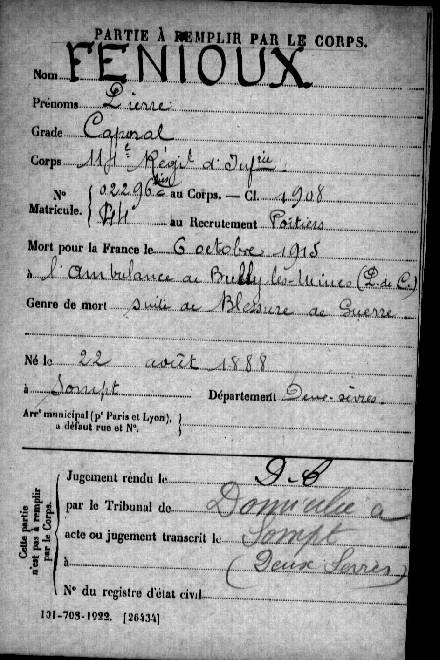 PARTIE À REMPLIR PAR LE CORPS.
Nom FENIOUX
Prénoms Pierre
Grade Caporal
Corps 114e Régit d'Infrie
No 02296 bis au Corps. — Cl. 1908
Matricule. 44 au Recrutement Poitiers
Mort pour la France le 6 octobre 1915
à l'ambulance de Bully les-Mines (P. de C.)
Genre de mort suite de Blessure de Guerre
Né le 22 août 1888
à Sompt Département Deux-sèvres
Arrt municipal (pr Paris et Lyon),
à défaut rue et No.
Cette partie n'est pas à remplir par le Corps.
Jugement rendu le D-C
par le Tribunal de Domicilié à
acte ou jugement transcrit le Sompt
à (Deux Sevres)
No du registre d'état civil
101-708-1922. [26434]